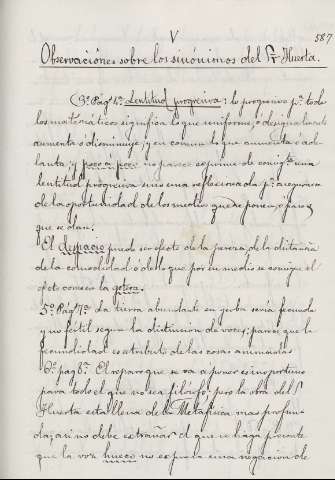 V
587
Observaciónes sobre los sinónimos del Sr Huerta.
3º Pág 4ª Lentitud progresiva: lo progresivo pª todos
los matemáticos significa lo que uniforme, ó desigualmente
aumenta ó disminuye, y en comun lo que aumenta ó ade-
lanta, y poco á poco no parece exprime de consigte una
lentitud progresiva sino una reflexionada pª
de la oportunidad de los medios que se ponen, ó pasos
que se dan.
El despacio puede ser efecto de la pereza, de la distancia
de la comodidad ó de lo que por su medio se consigue el
efecto como en la gotera.
5º Pág 7ª la tierra abundante en yerba sería fecunda
y no fertil segun la distincion de voces; parece que la
fecundidad es atributo de las cosas animadas
6º pag 8ª. El reparo que se va a poner es importuno
para todo el que no sea filósofo, pero la obra del Sr
Huerta está llena de la Metafísica mas profun-
da, así no debe extrañar el que se haga presente
que la voz hueco no explica una negación de